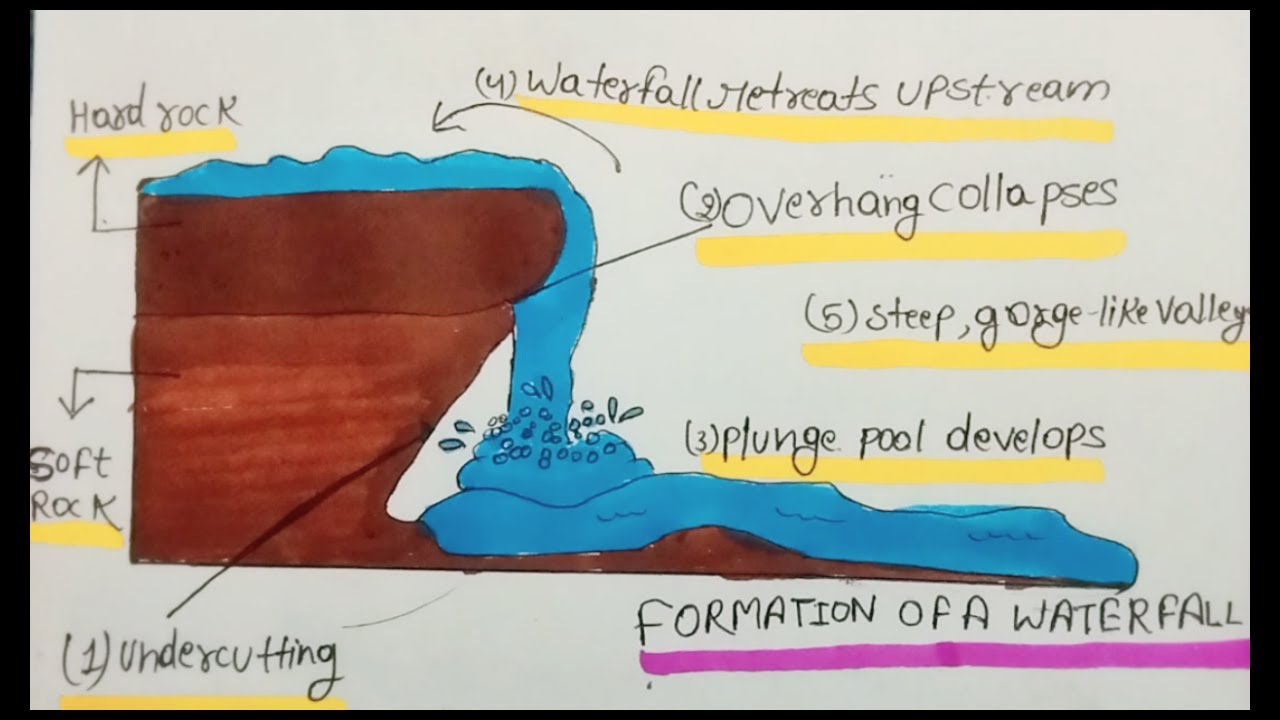 (4) Waterfall retreats upstream
Hard rock
(2) Overhang collapses
(5) Steep, gorge-like valley
(3) Plunge pool develops
Soft
Rock
FORMATION OF A WATERFALL
(1) Undercutting